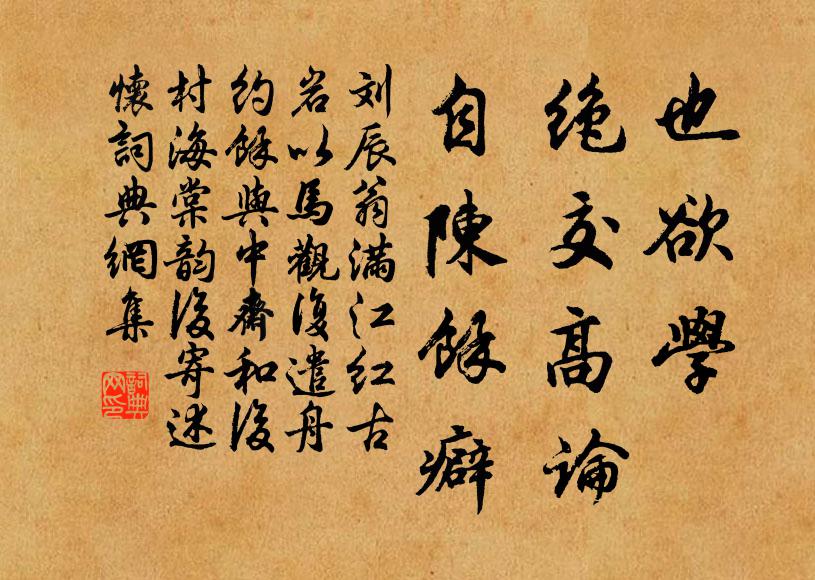 也欲學
绝交高論
自陳餘癖
刘辰翁满江红古
岩以馬觀復遣舟
约餘與中齋和後
村海棠韵後寄述
懷詞典網集
詞典网印